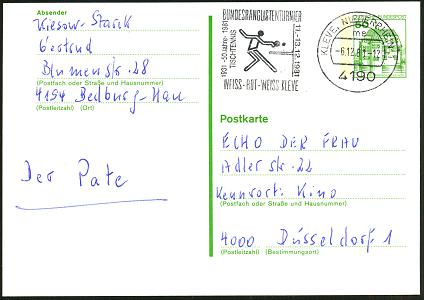 Absender
Wiesow-Starck
Gertrud
Blumenstr. 28
(Postfach oder Straße und Hausnummer)
4194 Bedburg-Hau
(Postleitzahl) (Ort)
Der Pate
BUNDESRANGLISTENTURNIER
1931 - 50 Jahre - 1981
TISCHTENNIS
11.-13.12.1981
WEISS-ROT-WEISS KLEVE
KLEVE, NIEDERRHEIN
-6.12.81-12
4190
Postkarte
ECHO DER FRAU
Adlerstr. 22
Kennwort: Kino
(Postfach oder Straße und Hausnummer)
4000 Düsseldorf 1
(Postleitzahl) (Bestimmungsort)